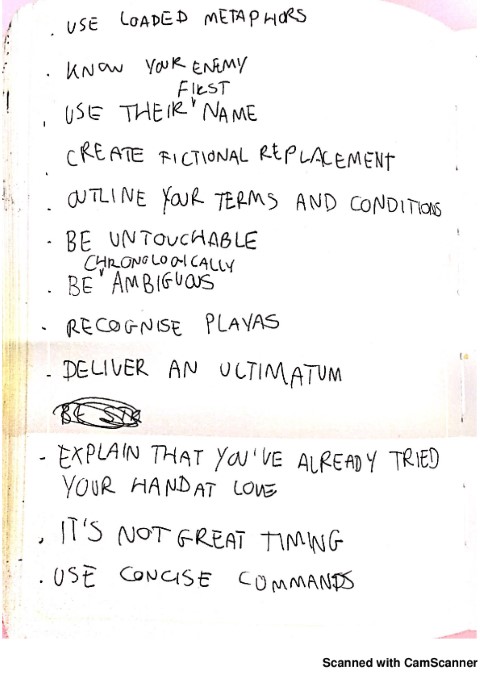 . USE LOADED METAPHORS
. KNOW YOUR ENEMY
. USE THEIR FIRST NAME
. CREATE FICTIONAL REPLACEMENT
. OUTLINE YOUR TERMS AND CONDITIONS
- BE UNTOUCHABLE
. BE CHRONOLOGICALLY AMBIGUOUS
. RECOGNISE PLAYAS
. DELIVER AN ULTIMATUM
- EXPLAIN THAT YOU'VE ALREADY TRIED
YOUR HAND AT LOVE
. IT'S NOT GREAT TIMING
. USE CONCISE COMMANDS
Scanned with CamScanner